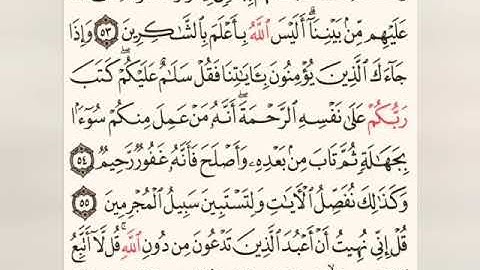 عَلَيْهِم مِّنۢ بَيْنِنَآۗ أَلَيْسَ ٱللَّهُ بِأَعْلَمَ بِٱلشَّٰكِرِينَ ٥٣ وَإِذَا
جَآءَكَ ٱلَّذِينَ يُؤْمِنُونَ بِـَٔايَٰتِنَا فَقُلْ سَلَٰمٌ عَلَيْكُمْۖ كَتَبَ
رَبُّكُمْ عَلَىٰ نَفْسِهِ ٱلرَّحْمَةَۖ أَنَّهُۥ مَنْ عَمِلَ مِنكُمْ سُوٓءًۢا
بِجَهَٰلَةٍ ثُمَّ تَابَ مِنۢ بَعْدِهِۦ وَأَصْلَحَ فَأَنَّهُۥ غَفُورٌ رَّحِيمٌ ٥٤
وَكَذَٰلِكَ نُفَصِّلُ ٱلْأٓيَٰتِ وَلِتَسْتَبِينَ سَبِيلُ ٱلْمُجْرِمِينَ ٥٥
قُلْ إِنِّى نُهِيتُ أَنْ أَعْبُدَ ٱلَّذِينَ تَدْعُونَ مِن دُونِ ٱللَّهِۚ قُل لَّآ أَتَّبِعُ